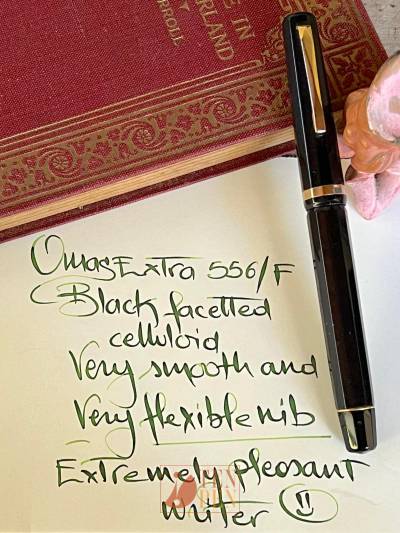 E IN
ERLAND
Y
RROLL
Omas Extra 556/F
Black facetted
celluloid
Very smooth and
Very flexible nib
Extremely pleasant
writer